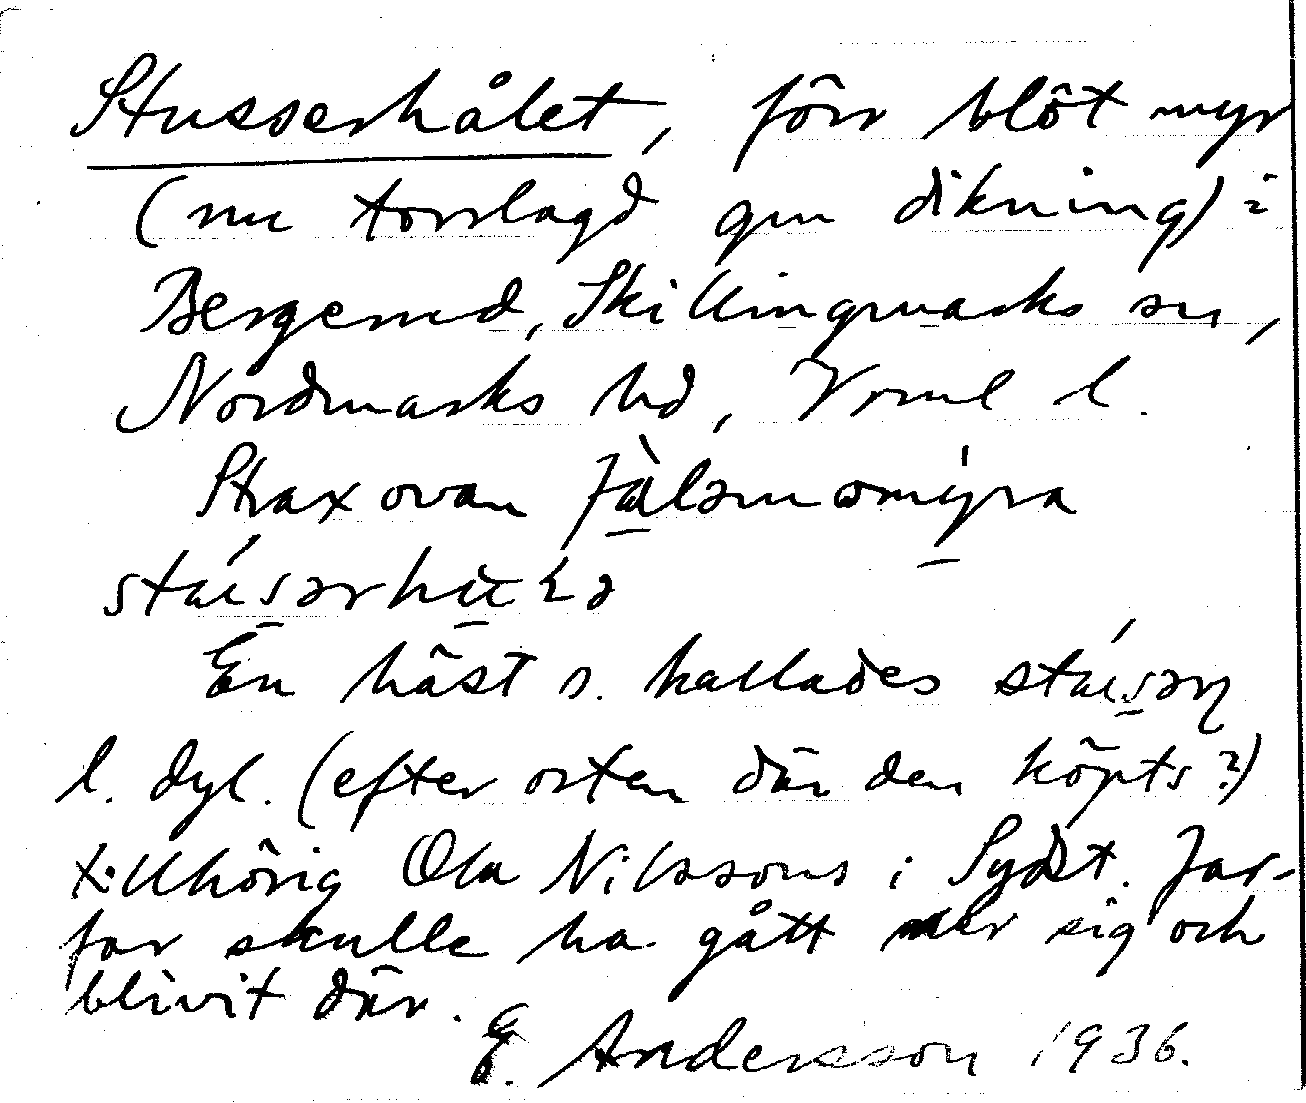 Stusserhålet, förr blöt myr
(nu torrlagd gm dikning) i
Bergerud, Skillingmarks sn,
Nordmarks hd, Vrml l.
Strax ovan
En häst s. kallades
l. dyl. (efter orten där den köpts?)
tillhörig Ola Nilssons i Sydst. Far-
far skulle ha gått ner sig och
blivit där.
E. Andersson 1936.